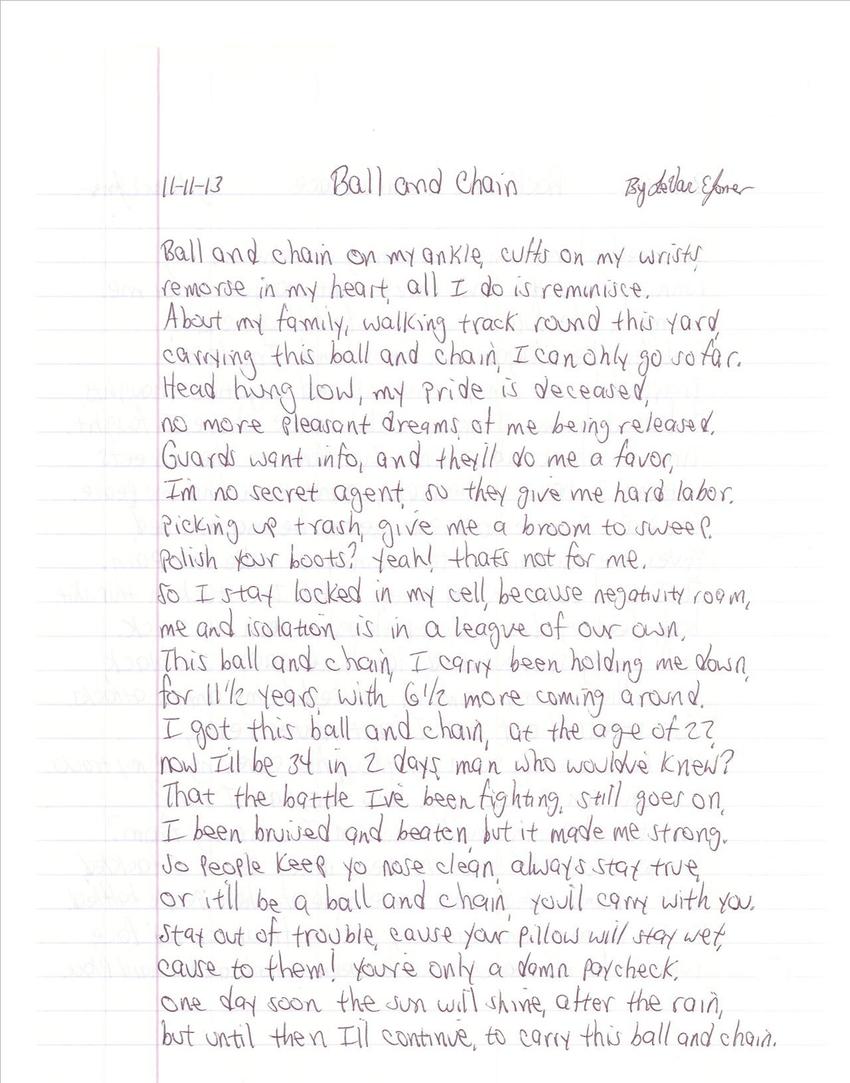 11-11-13 Ball and Chain By
Ball and chain on my ankle, cuffs on my wrists,
remorse in my heart, all I do is reminisce.
About my family, walking track round this yard,
carrying this ball and chain, I can only go so far.
Head hung low, my pride is deceased,
no more pleasant dreams, of me being released.
Guards want info, and they'll do me a favor,
I'm no secret agent, so they give me hard labor.
Picking up trash, give me a broom to sweep.
Polish your boots? Yeah! that's not for me.
So I stay locked in my cell, because negativity roam,
me and isolation is in a league of our own,
This ball and chain, I carry been holding me down,
for 11 1/2 years, with 6 1/2 more coming around.
I got this ball and chain, at the age of 22,
now I'll be 34 in 2 days, man who would've knew?
That the battle I've been fighting, still goes on,
I been bruised and beaten, but it made me strong.
So people keep yo nose clean, always stay true,
or it'll be a ball and chain, you'll carry with you.
Stay out of trouble, cause your pillow will stay wet,
cause to them! you're only a damn paycheck.
one day soon the sun will shine, after the rain,
but until then I'll continue, to carry this ball and chain.